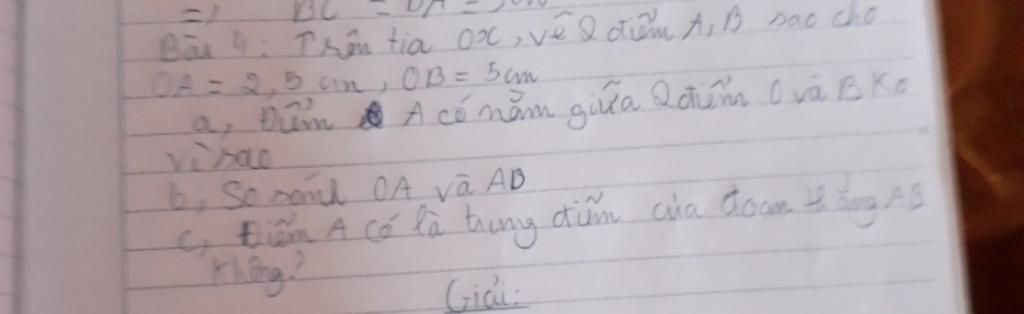 =) BC = OA = 3cm
Bài 4: Trên tia Ox, vẽ 2 điểm A, B sao cho
OA = 2,5 cm, OB = 5cm
a, Điểm A có nằm giữa 2 điểm O và B Ko
vì sao
b, So sánh OA và AB
c, Điểm A có là trung điểm của đoạn thẳng AB
không?
Giải: